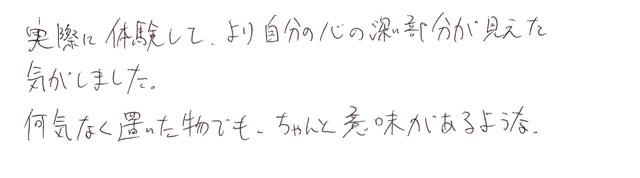 実際に体験して、より自分の心の深い部分が見えた
気がしました。
何気なく置いた物でも、ちゃんと意味があるような。